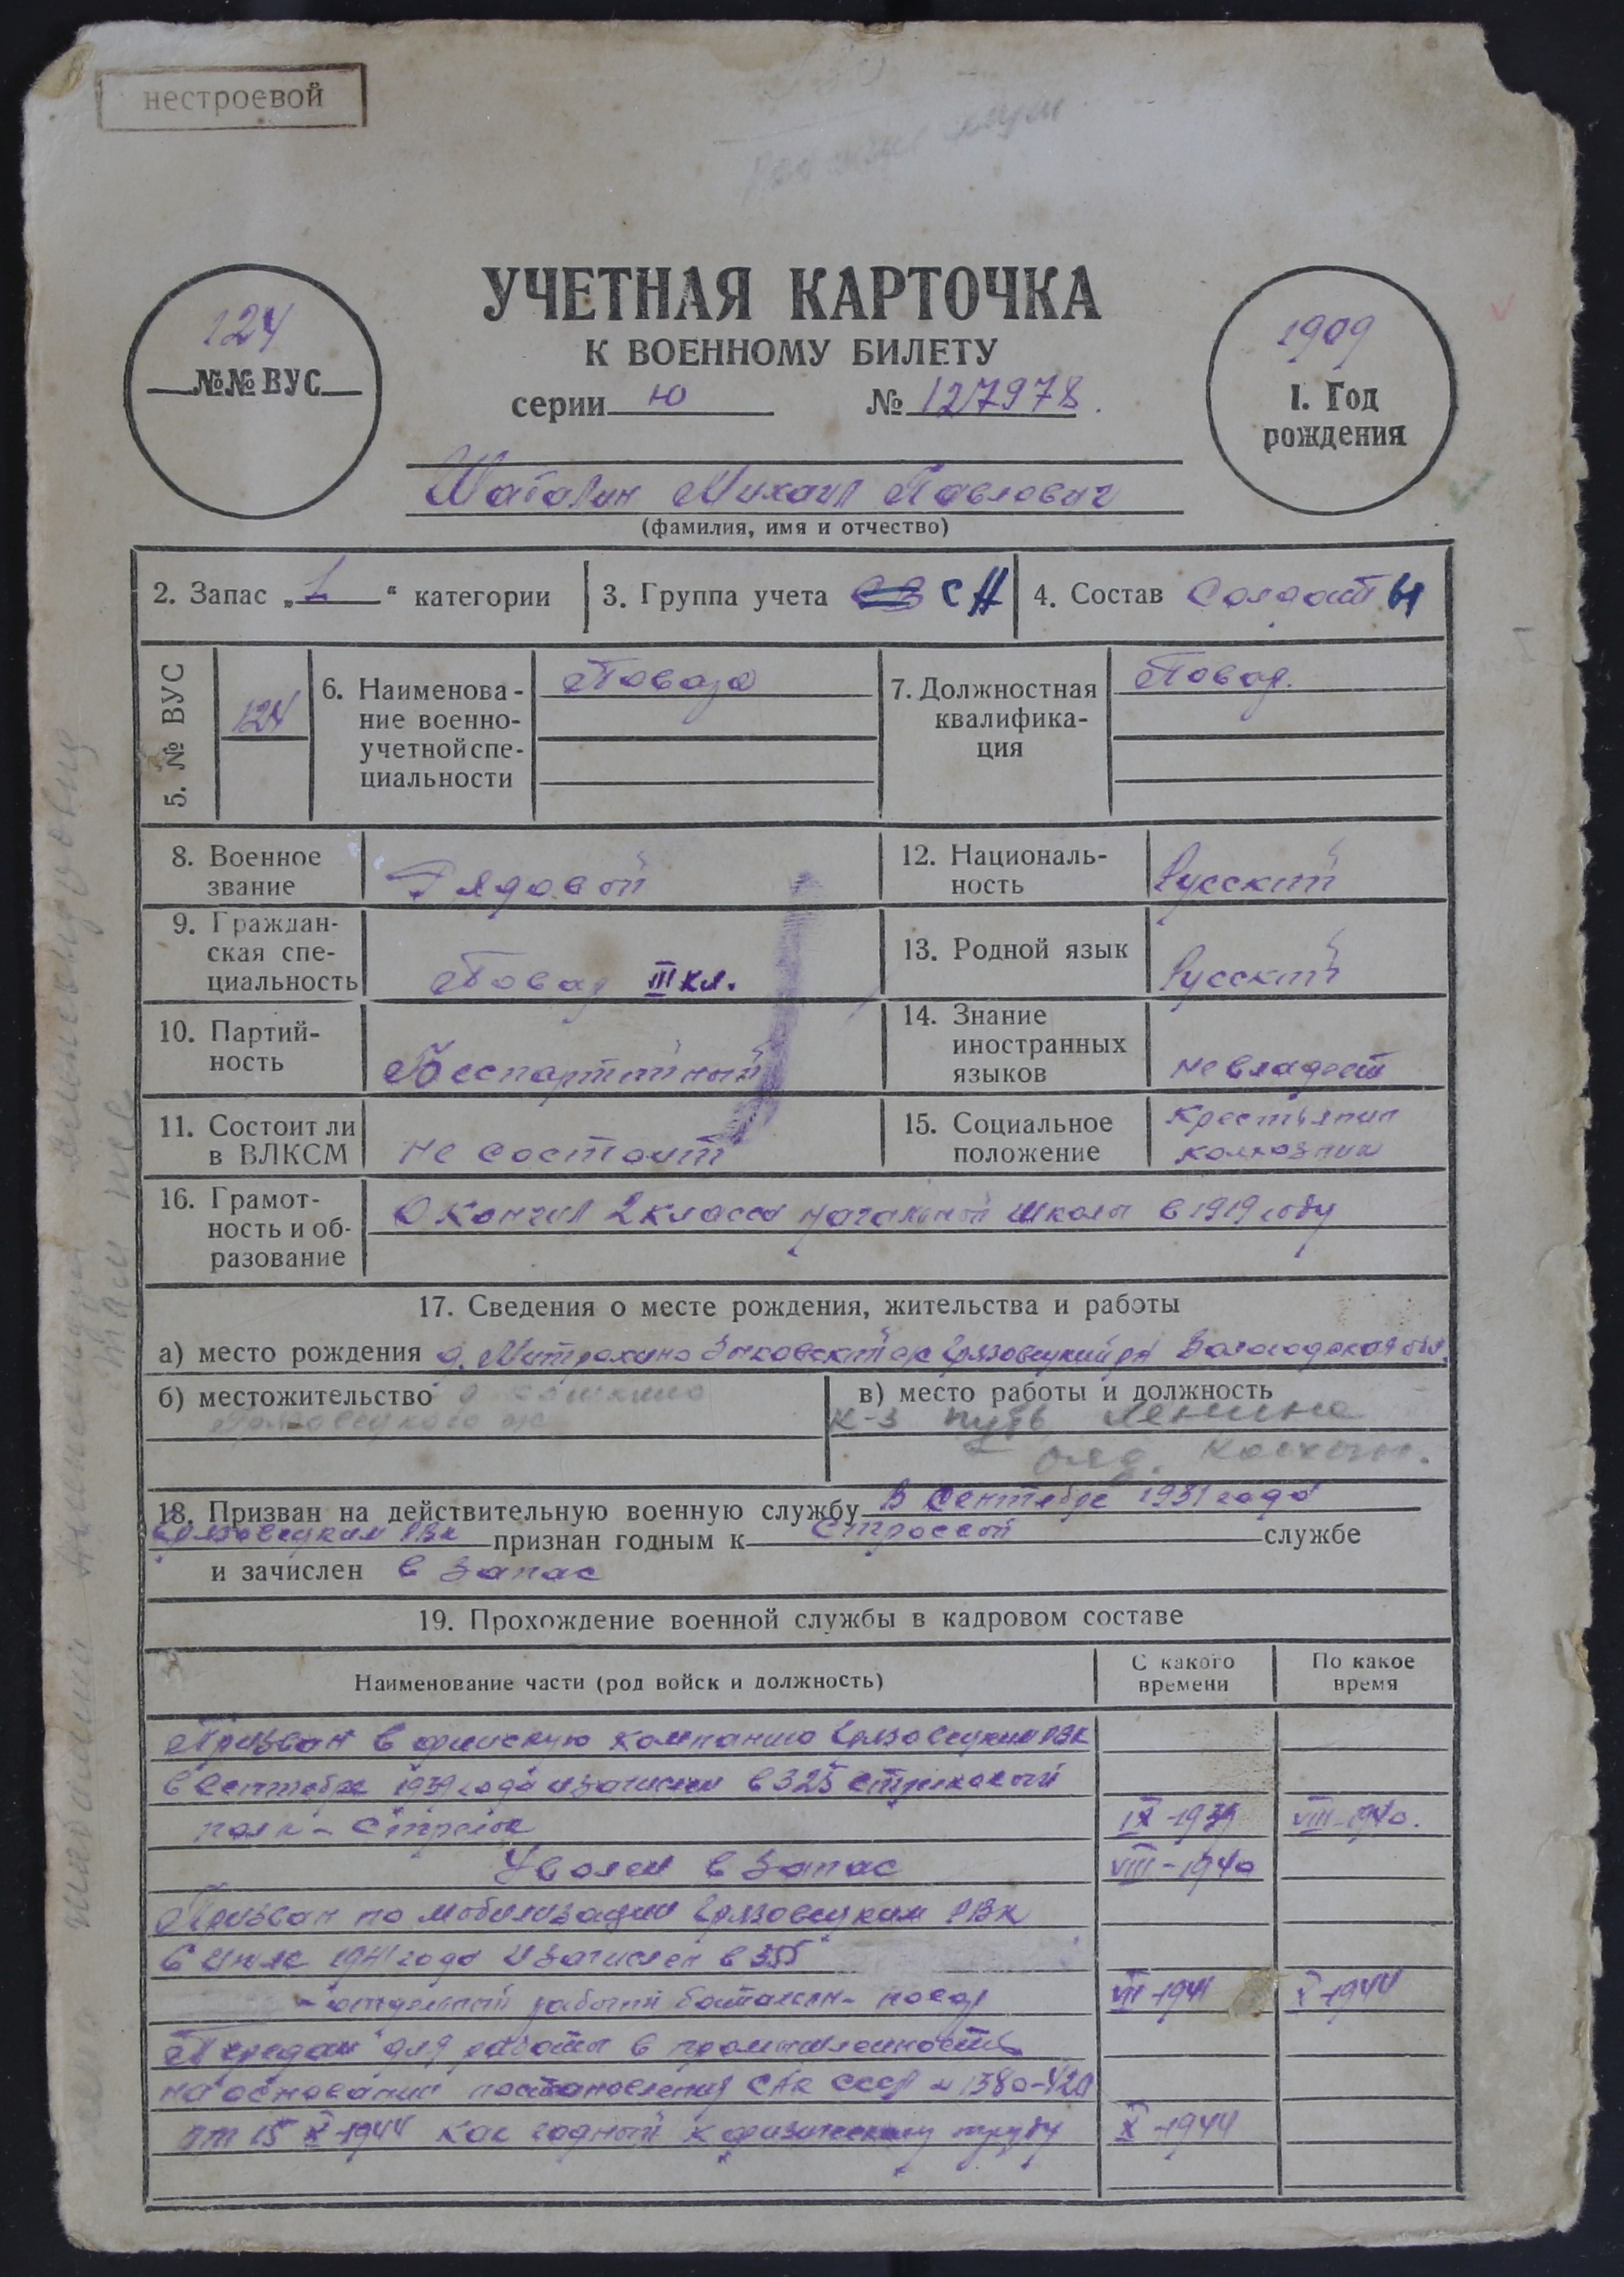 нестроевой
УЧЕТНАЯ КАРТОЧКА
К ВОЕННОМУ БИЛЕТУ
серии Ю № 127978.
124
№№ ВУС
1909
1. Год
рождения
Шаталин Михаил Павлович
(фамилия, имя и отчество)
2. Запас „1“ категории
3. Группа учета СН
4. Состав Солдаты
5. № ВУС
124
6. Наименова-
ние военно-
учетной спе-
циальности
Повара
7. Должностная
квалифика-
ция
Повар.
8. Военное
звание
Рядовой
12. Националь-
ность
Русский
9. Граждан-
ская спе-
циальность
Повар III кл.
13. Родной язык
Русский
10. Партий-
ность
Беспартийный
14. Знание
иностранных
языков
не владеет
11. Состоит ли
в ВЛКСМ
не состоит
15. Социальное
положение
крестьянин
колхозник
16. Грамот-
ность и об-
разование
Окончил 2 класса начальной школы в 1919 году
17. Сведения о месте рождения, жительства и работы
а) место рождения д. Митрохино Зыковский с/с Грязовецкий р-н Вологодская обл.
б) местожительство д.
Грязовецкого
в) место работы и должность
к-з путь Ленина
ряд. колхозн.
18. Призван на действительную военную службу В Сентябре 1931 года
Грязовецким РВК признан годным к строевой службе
и зачислен в запас
19. Прохождение военной службы в кадровом составе
Наименование части (род войск и должность)
С какого
времени
По какое
время
Призван в финскую компанию Грязовецким РВК
в Сентябре 1939 года и зачислен в 325 стрелковый
полк - стрелок IX-1939 VIII-1940.
Уволен в запас VIII-1940
Призван по мобилизации Грязовецким РВК
в Июле 1941 года и зачислен в 355
- отдельный рабочий батальон - повар VII-1941 X-1944
Передан для работы в промышленность
на основании постановления СНК СССР № 1380-420
от 15 X-1944 как годный к физическому труду X-1944